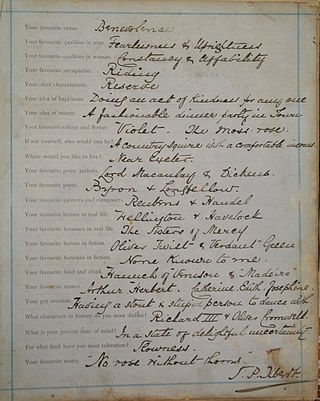 Your favourite virtue. Benevolence
Your favourite qualities in man. Fearlessness & Uprightness
Your favourite qualities in woman. Constancy & Affability
Your favourite occupation. Riding
Your chief characteristic. Reserve
Your idea of happiness. Doing an act of Kindness for any one
Your idea of misery. A fashionable dinner party in Town
Your favourite colour and flower. Violet. The Moss rose.
If not yourself, who would you be? A Country squire with a comfortable income.
Where would you like to live? Near Exeter.
Your favourite prose authors. Lord Macaulay & Dickens.
Your favourite poets. Byron & Longfellow.
Your favourite painters and composers. Reubens & Handel
Your favourite heroes in real life. Wellington & Havelock
Your favourite heroines in real life. The Sisters of Mercy
Your favourite heroes in fiction. Oliver Twist & Verdant Green
Your favourite heroines in fiction. None Known to me.
Your favourite food and drink. Haunch of Venison & "Madeira"
Your favourite names. Arthur Herbert. Catherine Edith Josephine
Your pet aversion. Having a stout & stupid person to dance with
What characters in history do you most dislike? Richard III & Oliver Cromwell
What is your present state of mind? In a state of delightful uncertainty
For what fault have you most toleration? Slowness.
Your favourite motto. "No rose without thorns"